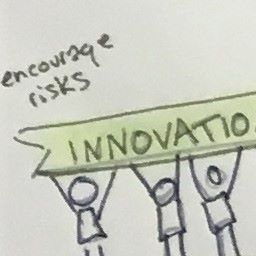 encourage
risks
INNOVATIO